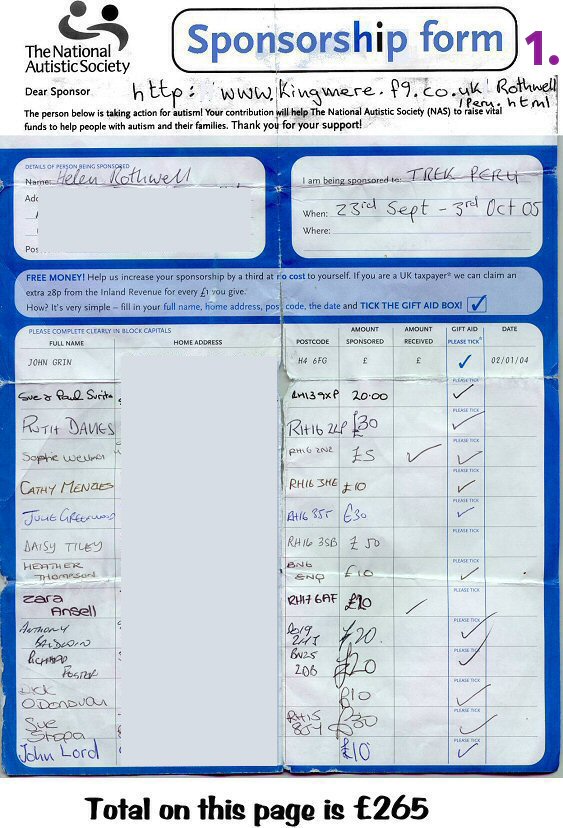 The National
Autistic Society
Sponsorship form
1.
Dear Sponsor
http: www.Kingmere.f9.co.uk/Rothwell
/Peru.html
The person below is taking action for autism! Your contribution will help The National Autistic Society (NAS) to raise vital
funds to help people with autism and their families. Thank you for your support!
DETAILS OF PERSON BEING SPONSORED
Name: Helen Rothwell
I am being sponsored to: TREK PERU
When: 23rd Sept - 3rd Oct 05
Where:
FREE MONEY! Help us increase your sponsorship by a third at no cost to yourself. If you are a UK taxpayer* we can claim an
extra 28p from the Inland Revenue for every £1 you give.
How? It's very simple – fill in your full name, home address, postcode, the date and TICK THE GIFT AID BOX!
PLEASE COMPLETE CLEARLY IN BLOCK CAPITALS
FULL NAME HOME ADDRESS POSTCODE AMOUNT SPONSORED AMOUNT RECEIVED GIFT AID PLEASE TICK* DATE
JOHN GRIN H4 6FG £ £ 02/01/04
PLEASE TICK
Sue & Paul RH13 9XP 20.00
PLEASE TICK
RUTH DAVIES RH16 2LP £30
PLEASE TICK
Sophie RH16 2NZ £5
PLEASE TICK
CATHY MENZIES RH16 3HE £10
PLEASE TICK
JULIE GREENWOOD RH16 3ST £30
PLEASE TICK
DAISY TILEY RH16 3SB £50
PLEASE TICK
HEATHER THOMPSON BN6 £10
PLEASE TICK
Zara Ansell RH17 6AF £10
PLEASE TICK
ANTHONY BALDWIN £20.
PLEASE TICK
RICHARD FOSTER BN25 2DB £20
PLEASE TICK
NICK O'DONOVAN £10
PLEASE TICK
Sue RH15 £30
PLEASE TICK
John Lord £10
Total on this page is £265